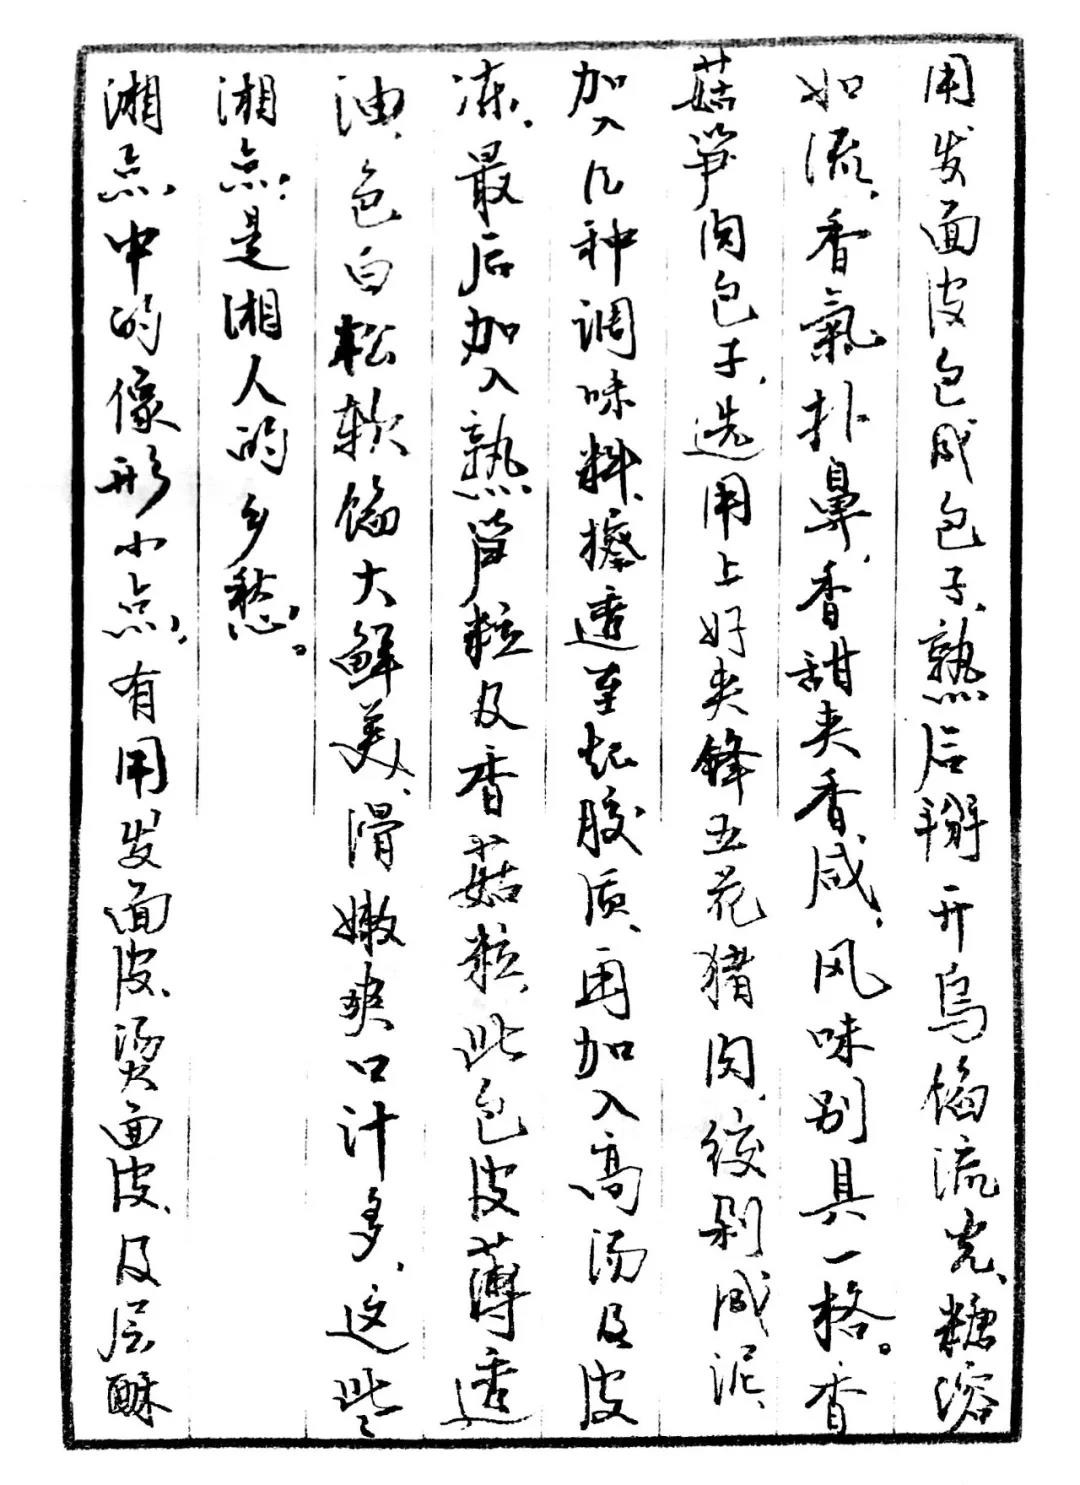 用发面皮包成包子、熟后掰开乌馅流光、糖溶
如流，香氣扑鼻，香甜夹香咸，风味别具一格。香
菇笋肉包子，选用上好夹锋五花猪肉、绞剁成泥、
加入几种调味料、擦透至起胶质、再加入高汤及皮
冻，最后加入熟笋粒及香菇粒，此包皮薄透
油、色白松软馅大鲜美、滑嫩爽口汁多、这些
湘点：是湘人的乡愁。
湘点中的像形小点，有用发面皮、烫面皮、及层酥